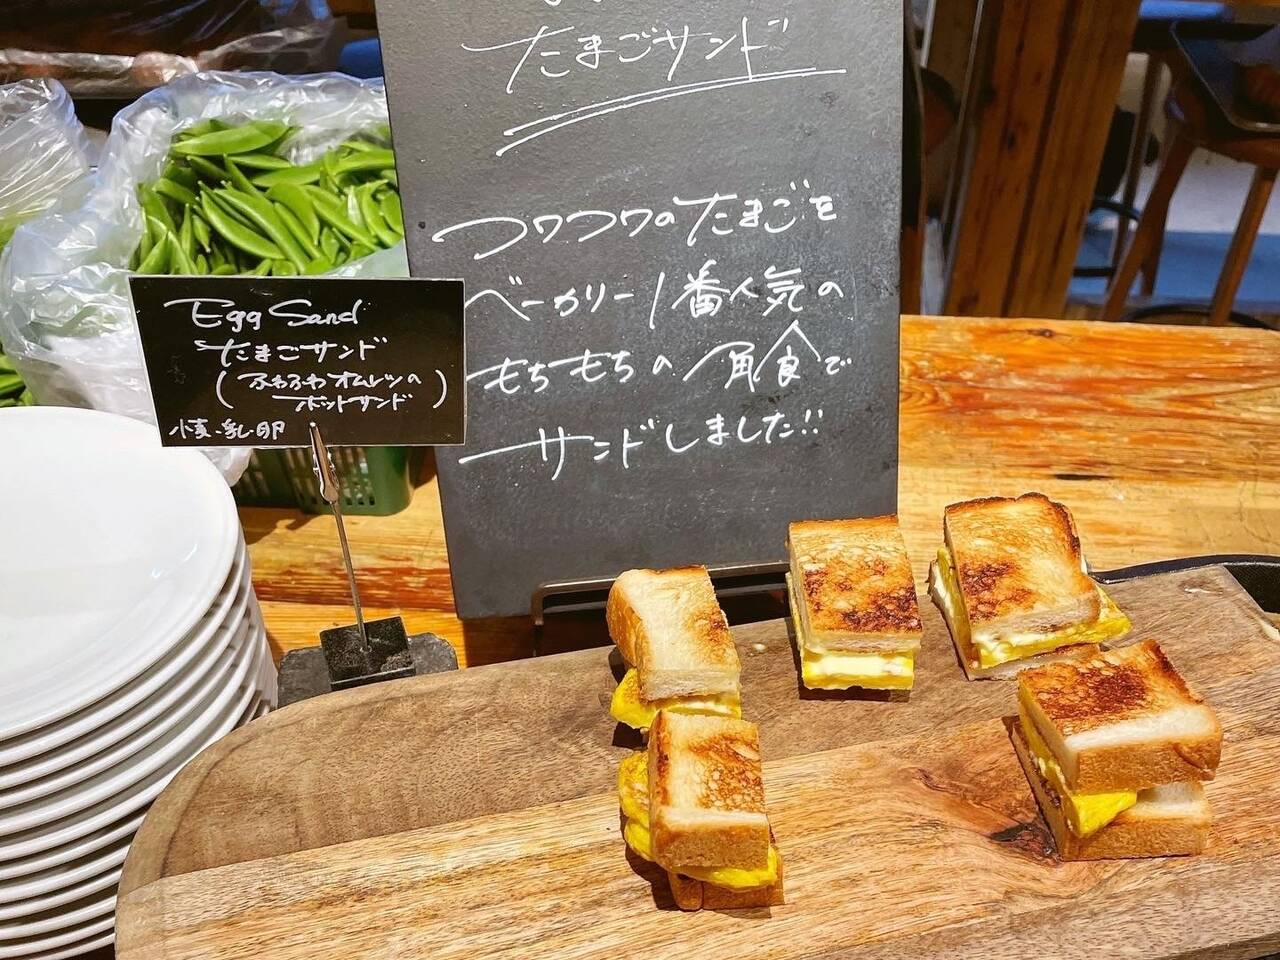 たまごサンド
フワフワのたまごを
ベーカリー1番人気の
もちもちの角食で
サンドしました!!
Egg Sand
たまごサンド
(ふわふわオムレツの
ホットサンド)
小麦・乳・卵